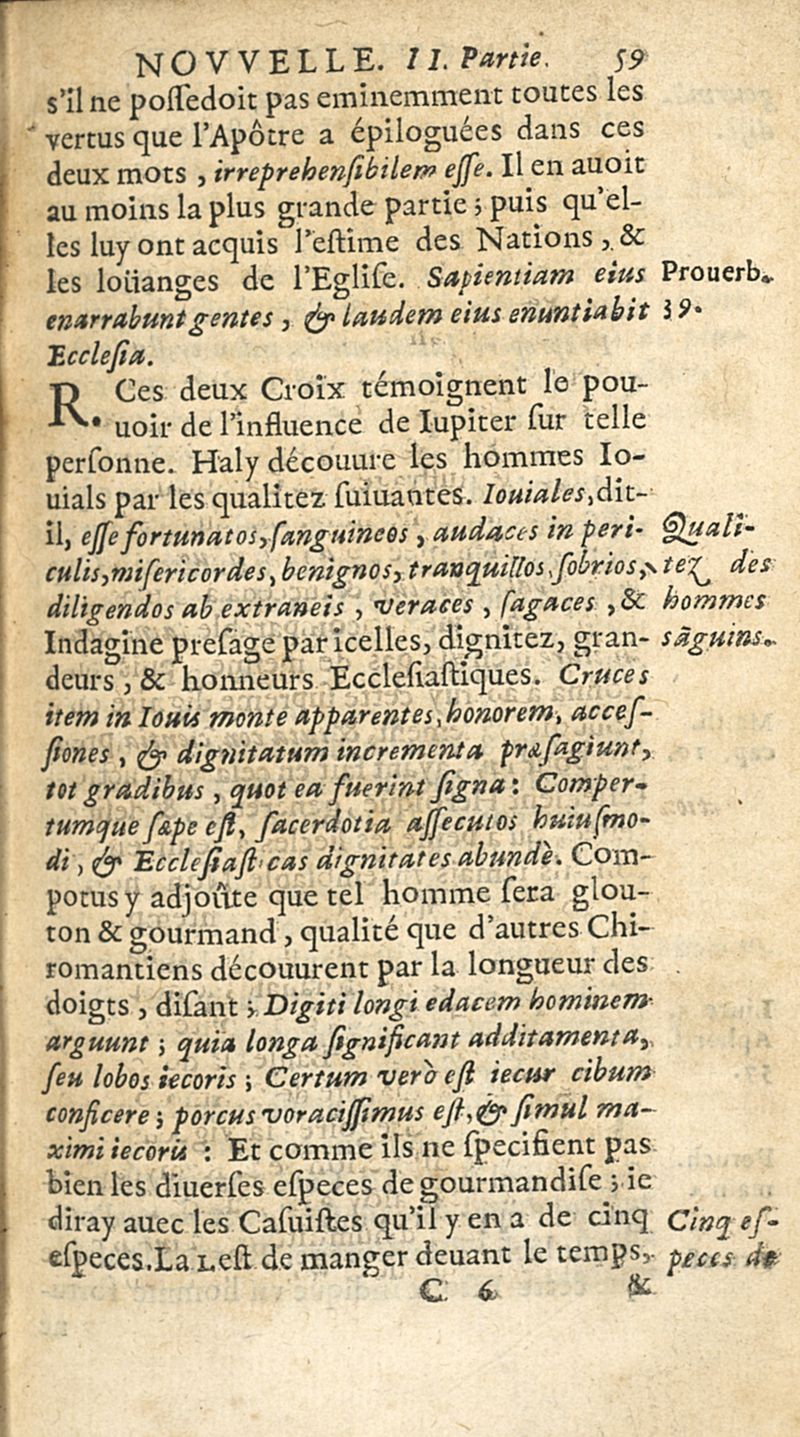 NOVVELLE. II. Partie. 59
s'il ne poſſedoit pas eminemment toutes les
vertus que l'Apôtre a épiloguées dans ces
deux mots, irreprehenſibilem eſſe. Il en auoit
au moins la plus grande partie; puis qu'el-
les luy ont acquis l'eſtime des Nations, &
les loüanges de l'Egliſe. Sapientiam eius
enarrabunt gentes, & laudem eius enuntiabit
Eccleſia.
Prouerb.
39.
R. Ces deux Croix témoignent le pou-
uoir de l'influence de Iupiter ſur telle
perſonne. Haly découure les hommes Io-
uials par les qualitez ſuiuantes. Iouiales, dit-
il, eſſe fortunatos, ſanguineos, audaces in peri-
culis, miſericordes, benignos, tranquillos, ſobrios,
diligendos ab extraneis, veraces, ſagaces, &
Indagine preſage par icelles, dignitez, gran-
deurs, & honneurs Eccleſiaſtiques. Cruces
item in Iouis monte apparentes, honorem, acceſ-
ſiones, & dignitatum incrementa præſagiunt,
tot gradibus, quot ea fuerint ſigna: Comper-
tumque ſæpe eſt, ſacerdotia aſſecutos huiuſmo-
di, & Eccleſiaſticas dignitates abundè. Com-
potus y adjoûte que tel homme ſera glou-
ton & gourmand, qualité que d'autres Chi-
romantiens découurent par la longueur des
doigts, diſant; Digiti longi edacem hominem
arguunt; quia longa ſignificant additamenta,
ſeu lobos iecoris; Certum verò eſt iecur cibum
conficere; porcus voraciſſimus eſt, & ſimul ma-
ximi iecoris: Et comme ils ne ſpecifient pas
bien les diuerſes eſpeces de gourmandiſe; ie
diray auec les Caſuiſtes qu'il y en a de cinq
eſpeces. La I. eſt de manger deuant le temps,
Quali-
tez des
hommes
sãguins.
Cinq eſ-
peces de
C 6 &